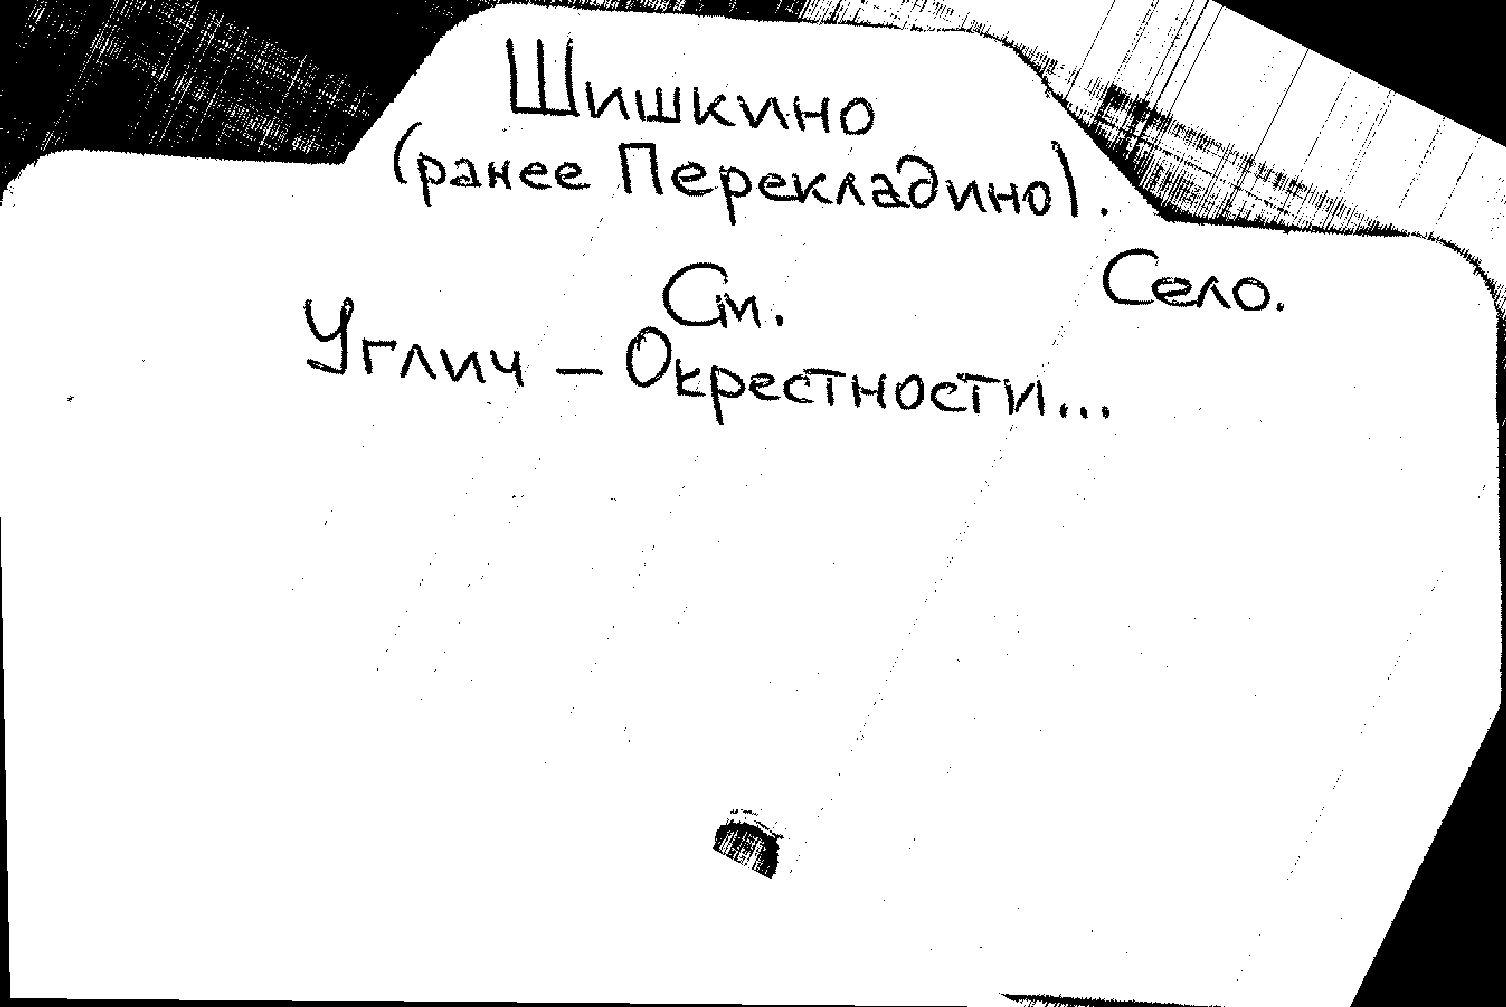 Шишкино
(ранее Перекладино).
Село.
См.
Углич – Окрестности...